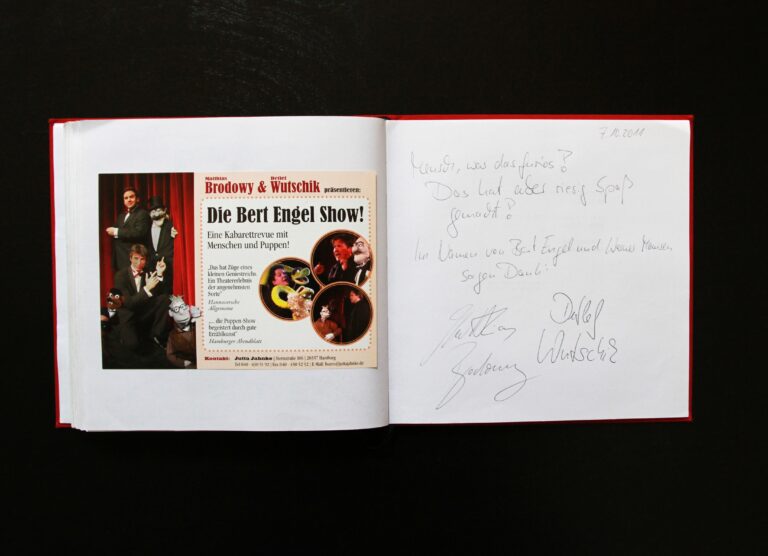 Matthias Detlef
Brodowy & Wutschik präsentieren:
Die Bert Engel Show!
Eine Kabarettrevue mit
Menschen und Puppen!
„Das hat Züge eines
kleinen Geniestreichs.
Ein Theatererlebnis
der angenehmsten
Sorte“
Hannoversche
Allgemeine
„... die Puppen-Show
begeistert durch gute
Erzählkunst“
Hamburger Abendblatt
Kontakt: Jutta Jahnke
7.10.2011
Mensch, war das furios!
Das hat aber riesig Spaß
gemacht!
Im Namen von Bert Engel und Werner Momsen
sagen Dank!
Matthias Detlef
Brodowy Wutschik